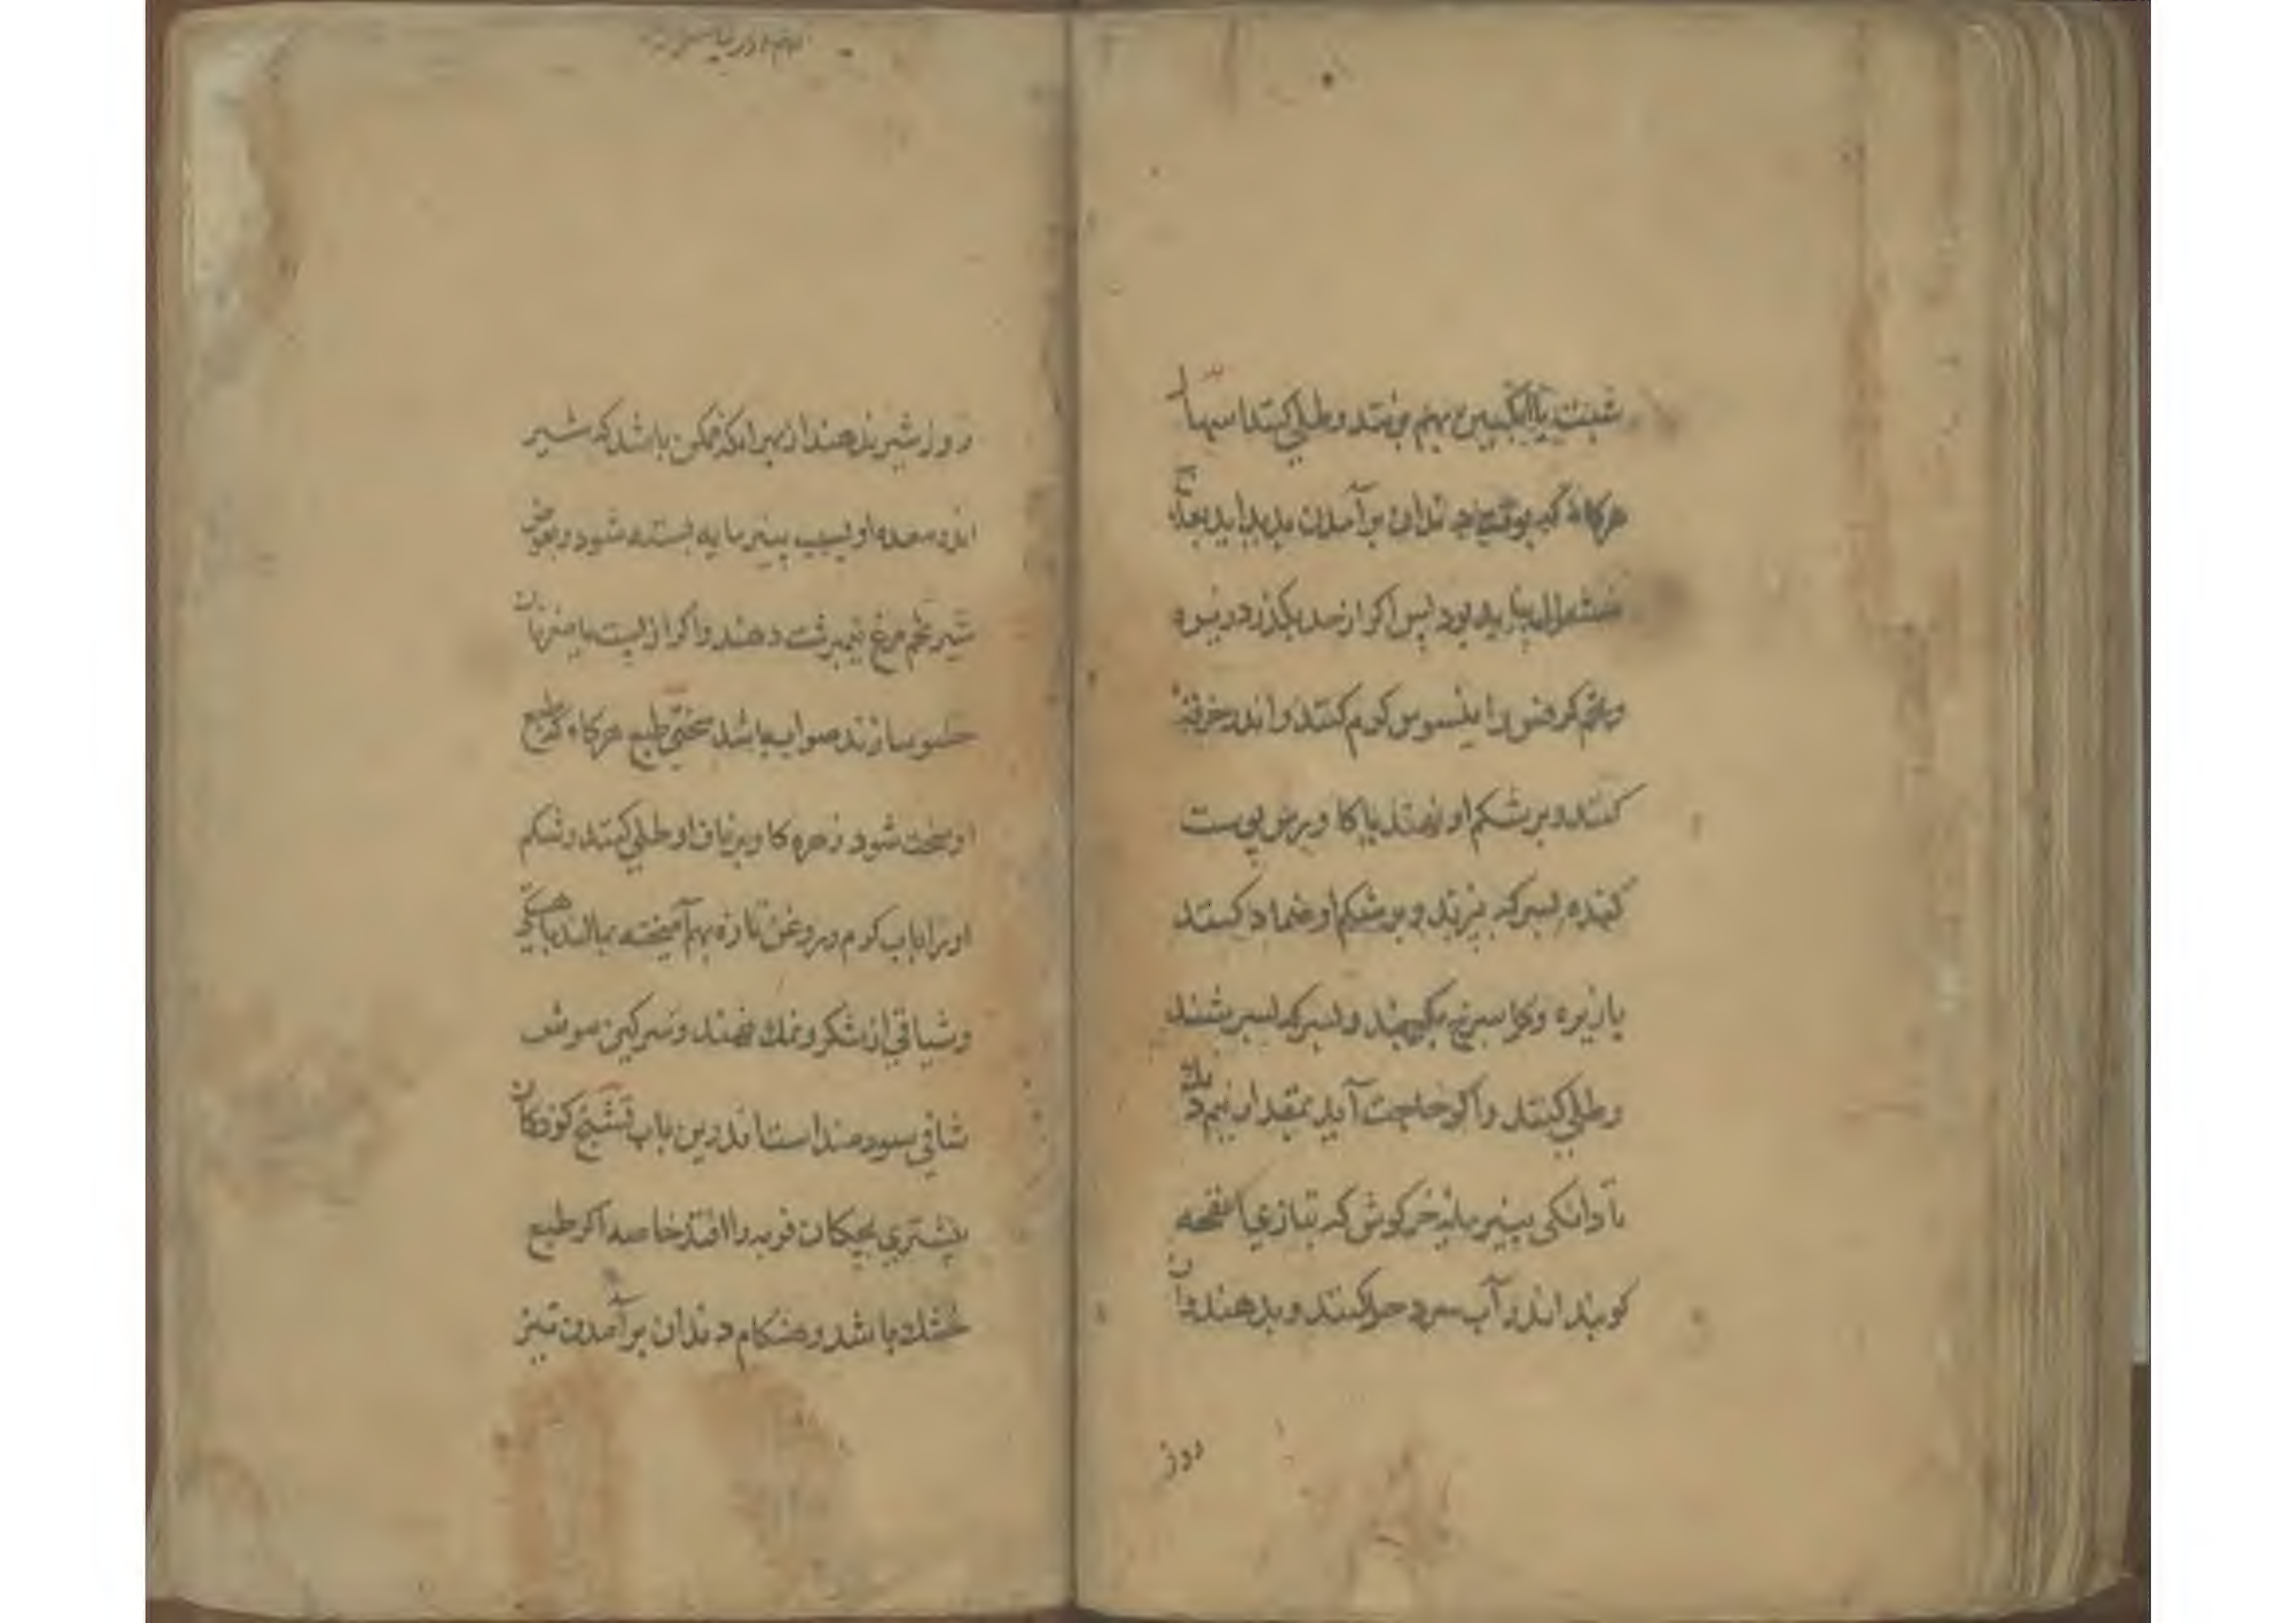 شبت یا انگبین بهم بزنند و طلی کنند اسهال
هرکاه که بوقت دندان برآمدن پدید اید بعلاج
مشغول نباید بود پس اکر از حد بکذرد زیره
و تخم کرفس و انیسون کرم کنند و اندر خرقه
کنند و بر شکم او نهند یا کاورس پوست
کنده بسرکه بپزند و بر شکم او ضماد کنند
یا زیره و کل سرخ بکیرند و بسرکه بسرشند
و طلی کنند و اکر حاجت آید بمقدار نیم دانک
تا دانکی پنیر مایه خرکوش که بتازی انفحه
کویند اندر آب سرد حل کنند و بدهند و آن
روز
روز شیر ندهند از بهر انکه ممکن باشد که شیر
اندر معده او بسبب پنیر مایه بسته شود و بعوض
شیر تخم مرغ نیمبرشت دهند و اکر از لیت یا نان
حسو سازند صواب باشد سختی طبع هرکاه که طبع
او سخت شود زهره کاو بر ناف او طلی کنند و شکم
او را باب کرم و روغن تازه بهم آمیخته بمالند باهستکی
و شیافی از شکر و نمک نهند و سرکین موش
شافی سودمند است اندرین باب تشنج کودکان
بیشتری بچکان فربه را افتد خاصه اکر طبع
خشک باشد و هنکام دندان برآمدن نیز